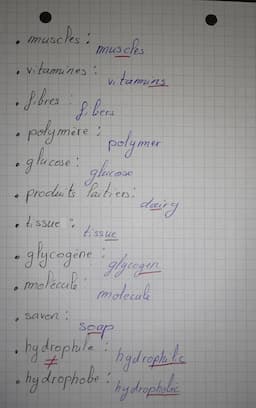 • muscles : muscles
• vitamines : vitamins
• fibres : fibers
• polymère : polymer
• glucose : glucose
• produits laitiers : dairy
• tissue : tissue
• glycogène : glycogen
• molécule : molecule
• savon : soap
• hydrophile : hydrophilic
≠
• hydrophobe : hydrophobic